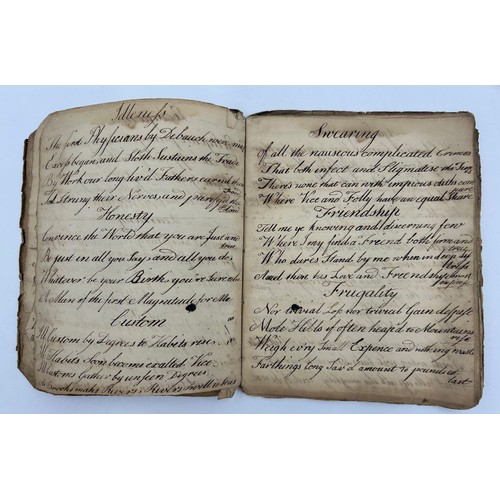 Idleness
The first Physicians by Debauch were made
Excess began and Sloth Sustains the Trade
By Work our long liv'd Fathers earn'd their
Food
It Strung their Nerves and
Blood
Honesty
Convince the World that you are Just and
true
Be just in all you Say and all you do
Whatever be your Birth you're
of the first Magnitude
Custom
Ill Custom by Degrees to Habits rise
Ill Habits Soon become exalted Vice
Ill Customs Gather by unseen Degrees
As Brooks make Rivers Rivers swell to Seas
Swearing
Of all the nauseous complicated Crimes
That both infect and Stigmatise the
There's none that can with impious Oaths com
pare
Where Vice and Folly have an equal Share
Friendship
Tell me ye knowing and discerning few
Where I may find a Friend both firm and
true
Who dares Stand by me when in deep
And then his Love and Friendship
Frugality
Nor trivial Loss nor trivial Gain despise
Mole Hills if often heap'd to Mountains
rise
Weigh ev'ry Small Expence and nothing waste
Farthings long Sav'd amount to pounds at
last